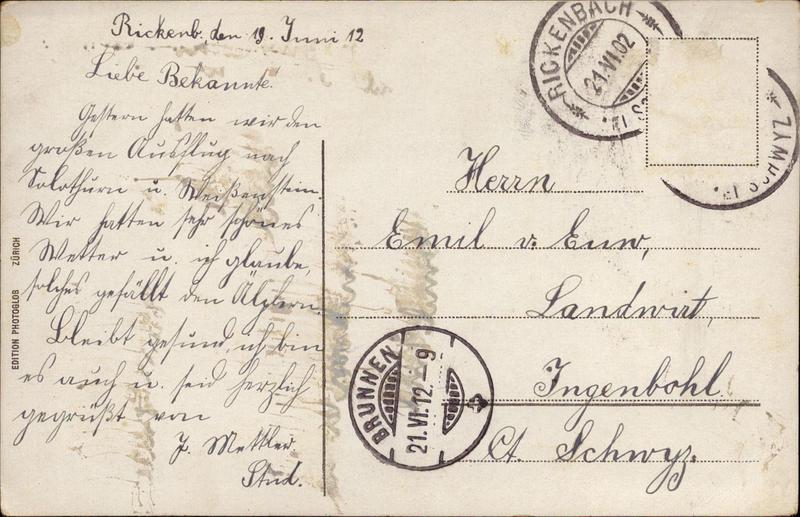 Rickenb. den 19. Juni 12
Liebe Bekannte.
Gestern hatten wir den
großen Ausflug nach
Solothurn u. Weißenstein.
Wir hatten sehr schönes
Wetter u. ich glaube,
solches gefällt den Älplern.
Bleibt gesund, ich bin
es auch u. seid herzlich
gegrüßt von
J. Mettler
Stud.
EDITION PHOTOGLOB ZÜRICH
RICKENBACH
21.VI.02
SCHWYZ
Herrn
Emil v. Euw,
Landwirt,
Ingenbohl
Ct. Schwyz.
BRUNNEN
21.VI.12.-9